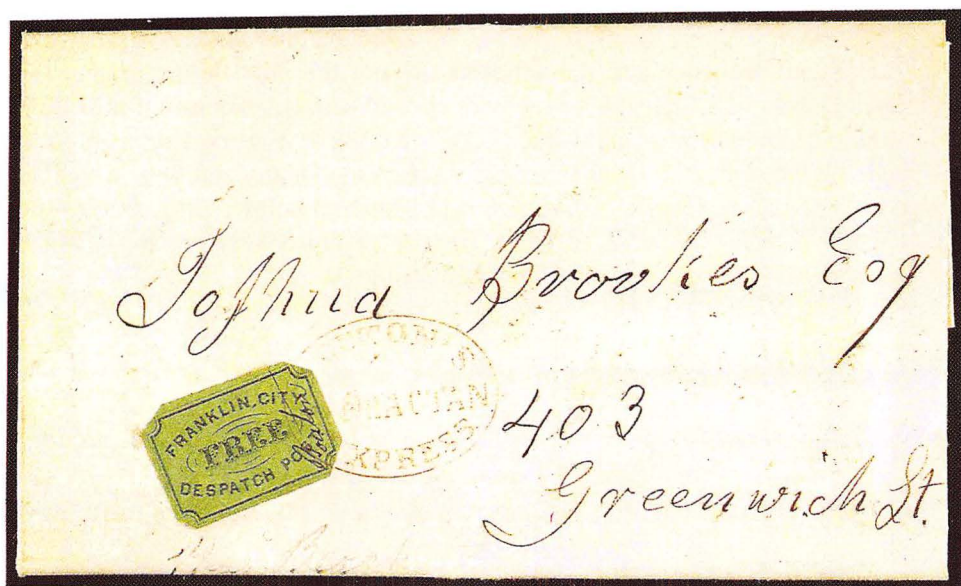 Joshua Brookes Esq
403
Greenwich St.
FRANKLIN.CITY
FREE
DESPATCH PO
XPRESS